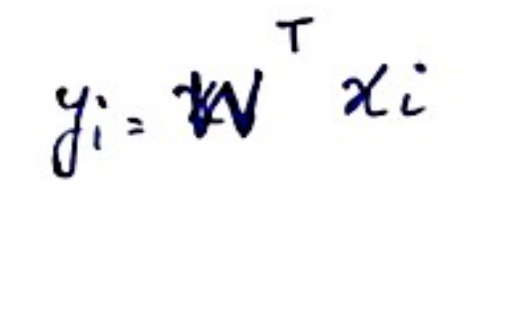 yᵢ = Wᵀ xᵢ